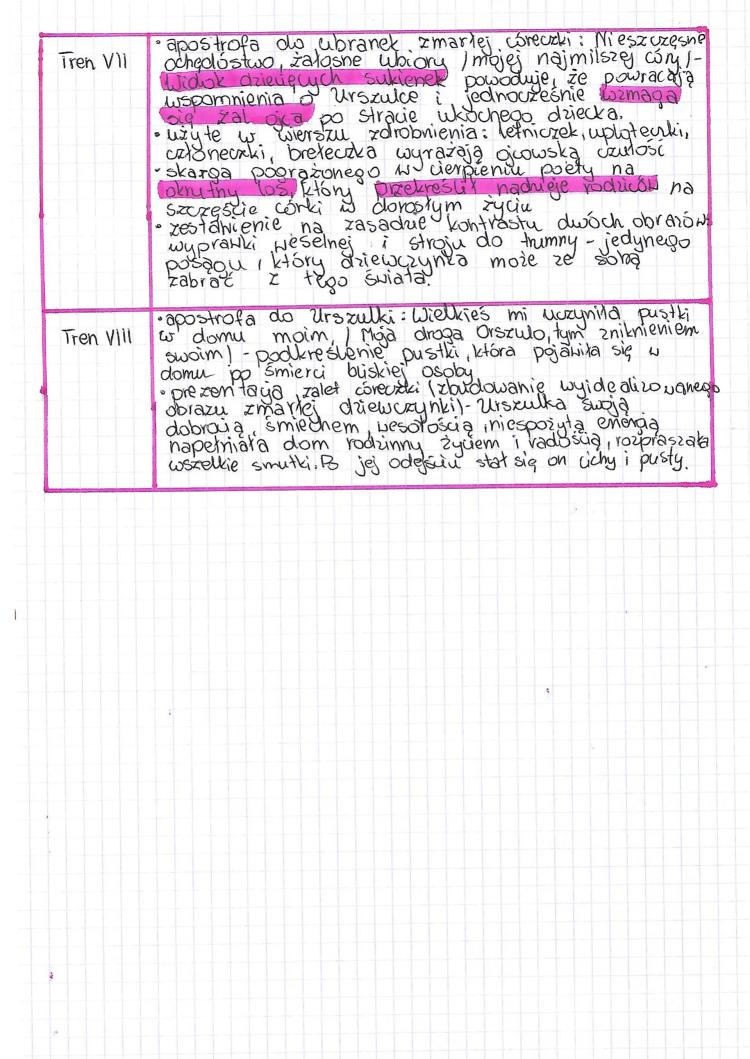 Tren VII
• apostrofa do ubranek zmarłej córeczki: Nieszczęsne
ochędóstwo, żałosne ubiory / mojej najmilszej córy! -
Widok dziecięcych sukienek powoduje, że powracają
wspomnienia o Urszulce i jednocześnie wzmaga
się żal ojca po stracie ukochego dziecka.
• użyte w wierszu zdrobnienia: letniczek, uploteczki,
członeczki, brełeczka wyrażają ojcowską czułość
• skarga pogrążonego w cierpieniu poety na
okrutny los, który przekreślił nadzieje rodziców na
szczęście córki w dorosłym życiu
• zestawienie na zasadzie kontrastu dwóch obrazów:
wyprawki weselnej i stroju do trumny - jedynego
posągu, który dziewczynka może ze sobą
zabrać z tego świata.
Tren VIII
• apostrofa do Urszulki: Wielkieś mi uczyniła pustki
w domu moim, / Moja droga Orszulo, tym zniknieniem
swoim! - podkreślenie pustki, która pojawiła się w
domu po śmierci bliskiej osoby
• prezentacja zalet córeczki (zbudowanie wyidealizowanego
obrazu zmarłej dziewczynki) - Urszulka swoją
dobrocią, śmiechem, wesołością, niespożytą energią
napełniała dom rodzinny życiem i radością, rozpraszała
wszelkie smutki. Po jej odejściu stał się on cichy i pusty.